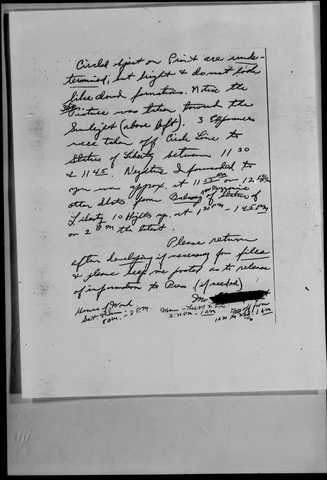 Circled object on Print are unde-
termined, but bright & do not look
like cloud formations. Notice the
Picture was taken toward the
Sunlight (above left). 3 exposures
were taken off Circle Line to
Statue of Liberty between 11 30
& 11 45. Negative I forwarded to
you was approx. at 11 or 12
other shots from Balcony of Statue of
Liberty 10 flights up, at 1 PM - 1 45 PM
or 2 PM the latest.
Please return
after developing if necessary for files
& please keep me posted as to release
of information to Press (if needed)
Hours of Work